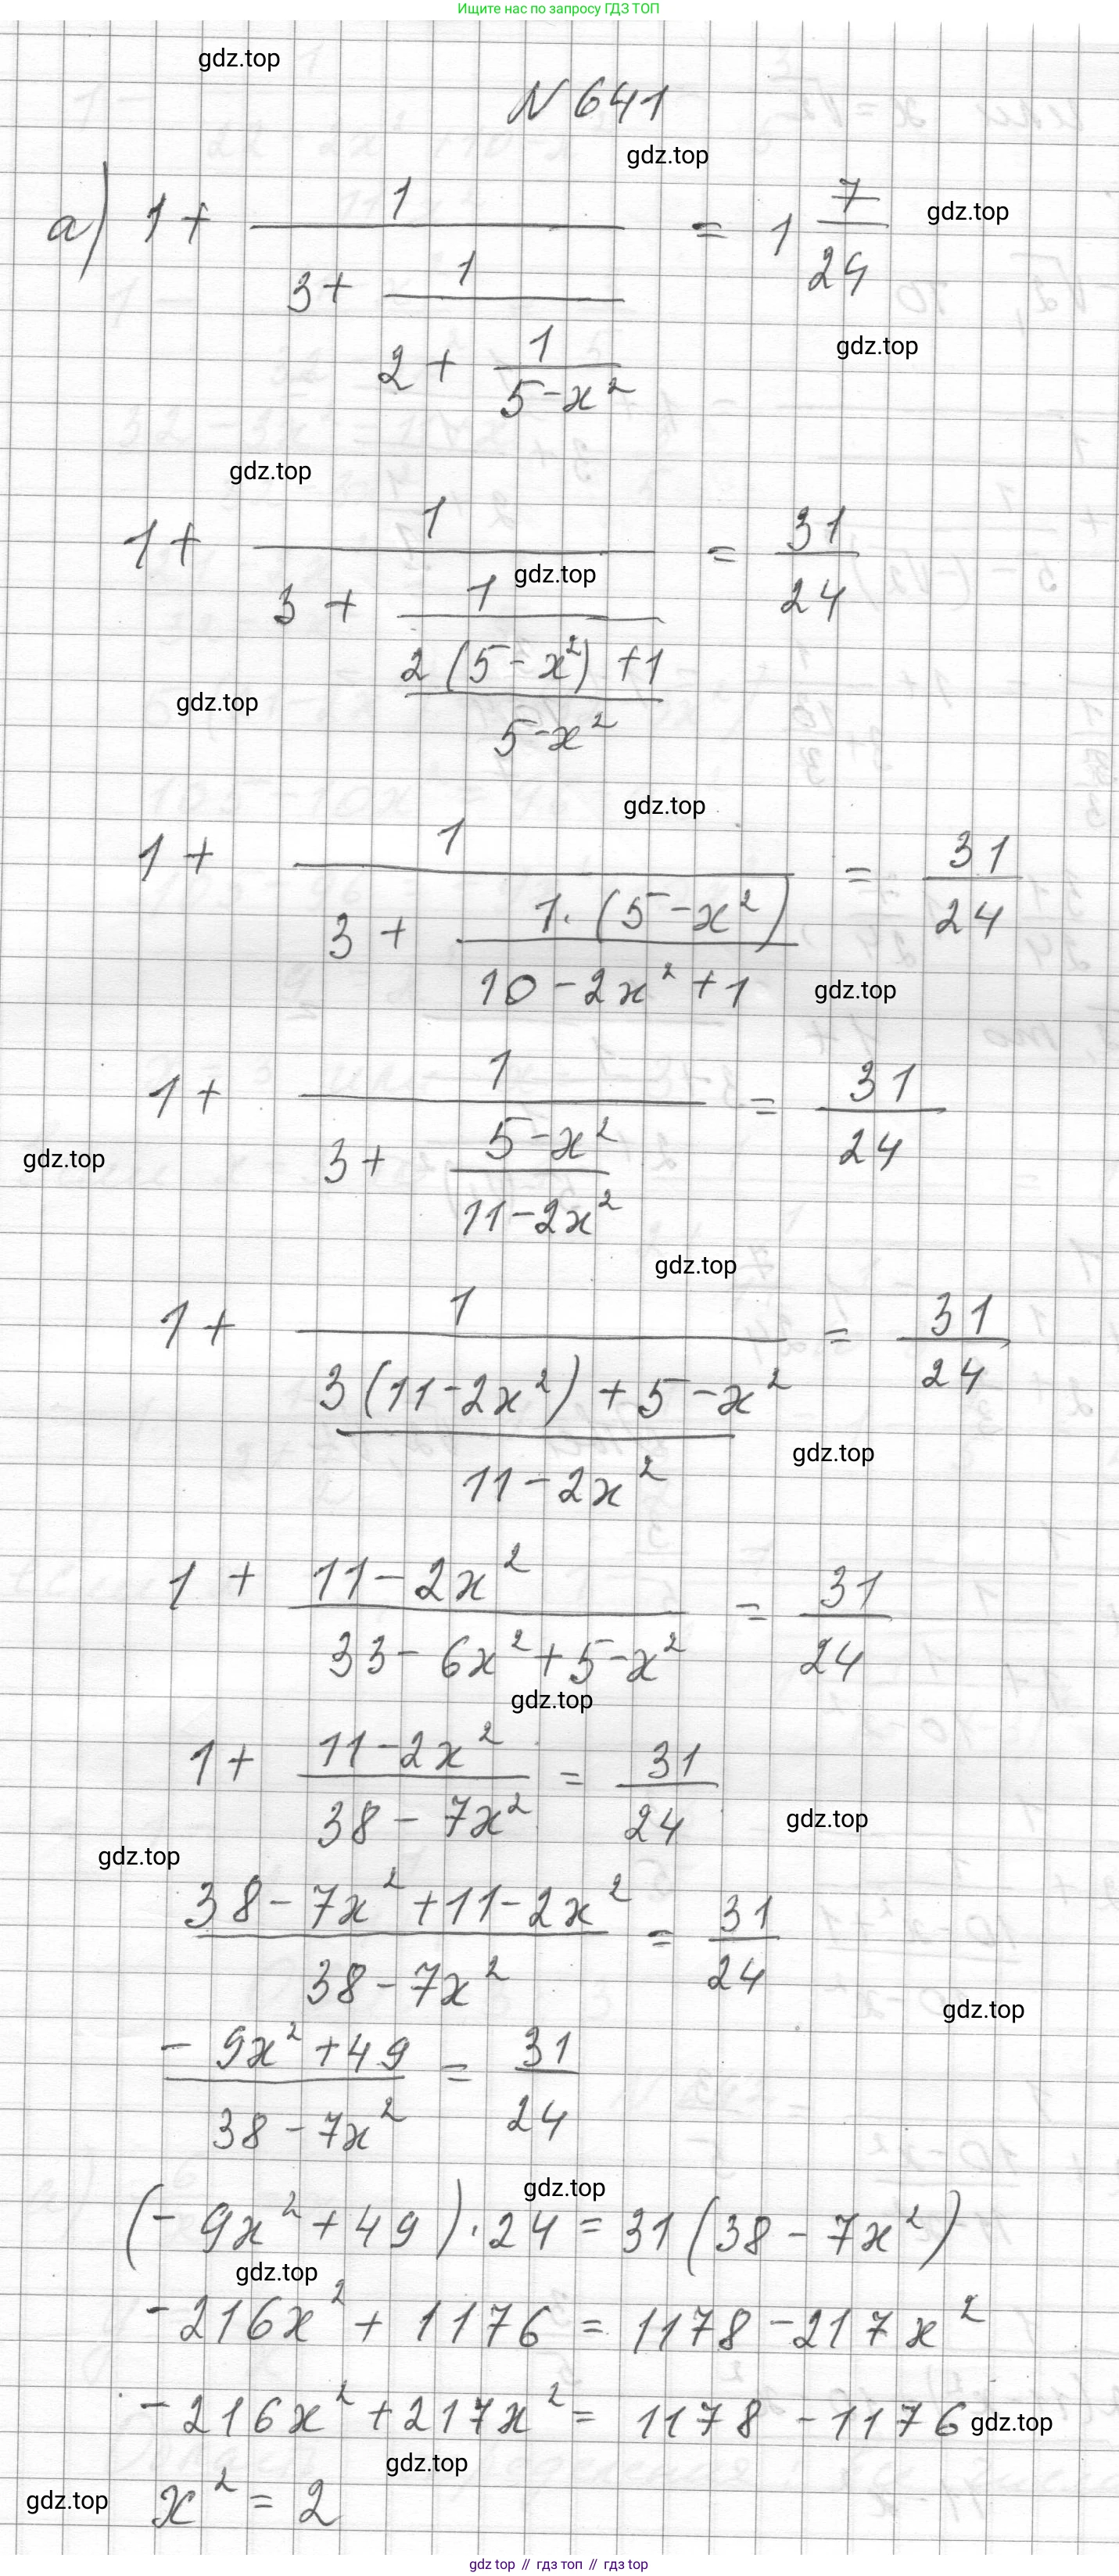 Ищите нас по запросу ГДЗ ТОП
gdz.top
N 641
gdz.top
а) 1 + 1 / (3 + 1 / (2 + 1 / (5 - x²))) = 1 7/24
gdz.top
gdz.top
gdz.top
1 + 1 / (3 + 1 / ((2 (5 - x²) + 1) / (5 - x²))) = 31/24
gdz.top
gdz.top
gdz.top
1 + 1 / (3 + 1 · (5 - x²) / (10 - 2x² + 1)) = 31/24
gdz.top
1 + 1 / (3 + (5 - x²) / (11 - 2x²)) = 31/24
gdz.top
gdz.top
1 + 1 / ((3 (11 - 2x²) + 5 - x²) / (11 - 2x²)) = 31/24
gdz.top
1 + (11 - 2x²) / (33 - 6x² + 5 - x²) = 31/24
gdz.top
1 + (11 - 2x²) / (38 - 7x²) = 31/24
gdz.top
gdz.top
(38 - 7x² + 11 - 2x²) / (38 - 7x²) = 31/24
gdz.top
(- 9x² + 49) / (38 - 7x²) = 31/24
gdz.top
(- 9x² + 49) · 24 = 31 (38 - 7x²)
gdz.top
- 216x² + 1176 = 1178 - 217x²
- 216x² + 217x² = 1178 - 1176
gdz.top
gdz.top
gdz.top
x² = 2
gdz top // гдз топ // гдз top